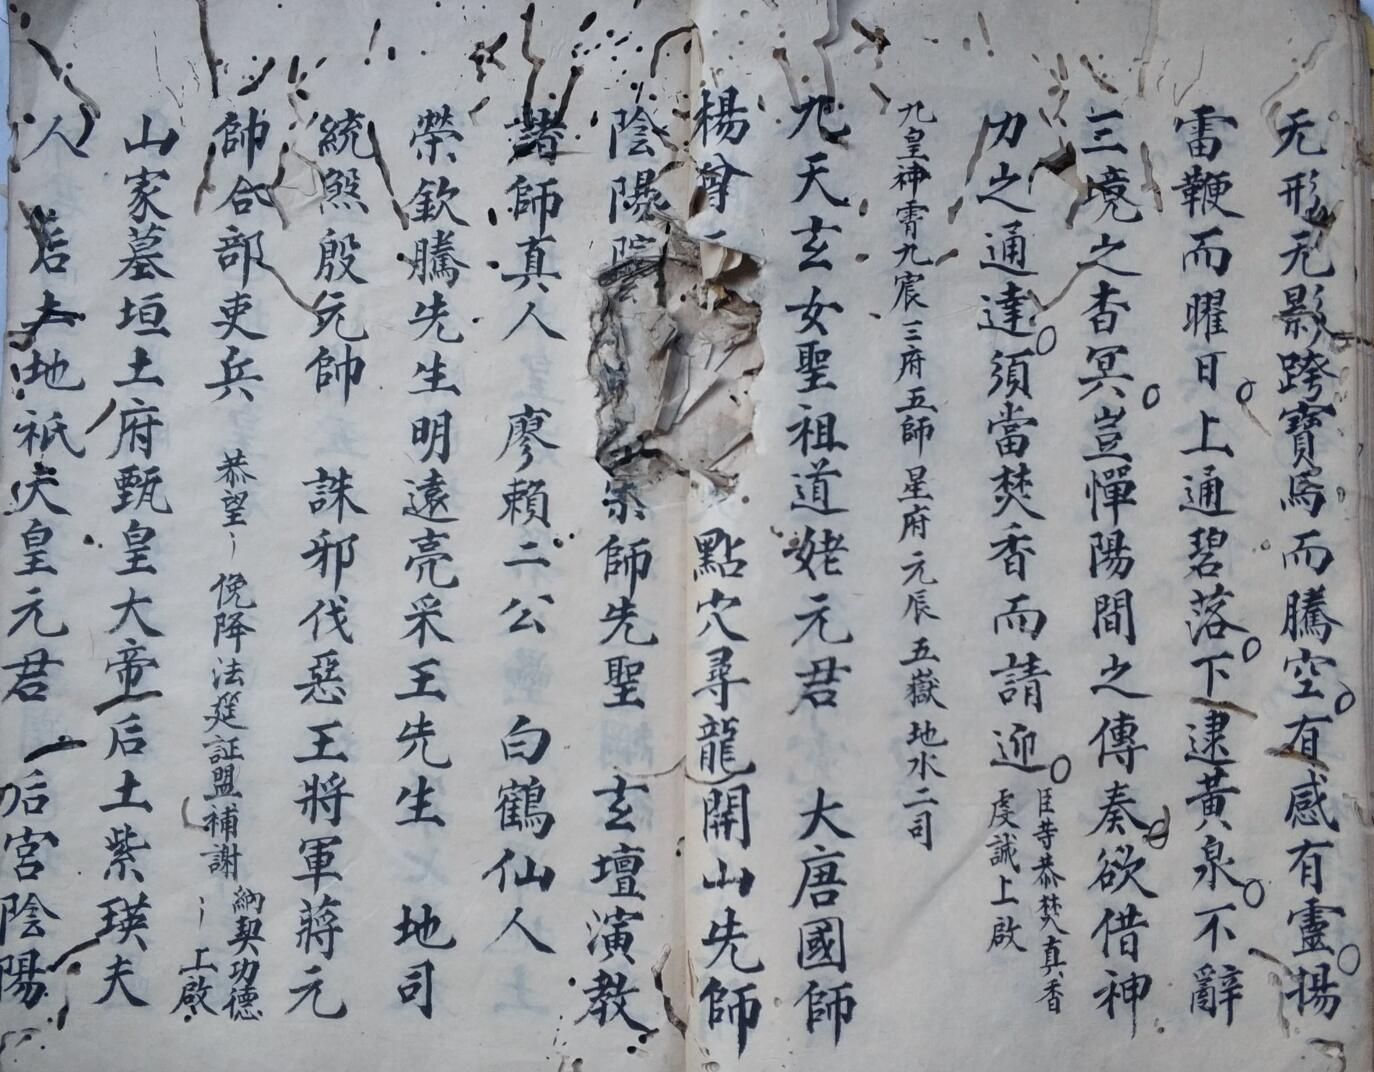 无形无影跨寶寯而騰空有感有靈揚
雷鞭而曜日上通碧落下逮黃泉不辭
三境之杳冥豈憚陽間之傳奏欲借神
力之通達須當焚香而請迎
臣等恭焚真香
虔誠上啟
九皇神霄九宸三府五師星府元辰五嶽地水二司
九天玄女聖祖道姥元君 大唐國師
楊 點穴尋龍開山先師
陰陽 師先聖 玄壇演教
諸師真人 廖賴二公 白鶴仙人
榮欽騰先生明遠亮采王先生 地司
統煞殷元帥 誅邪伐惡王將軍蔣元
帥合部吏兵 恭望 俛降法筵証盟補謝
納契功德
上啟
山家墓垣土府甄皇大帝后土紫瑛夫
人 后 地祇 皇元君 后宮陰陽